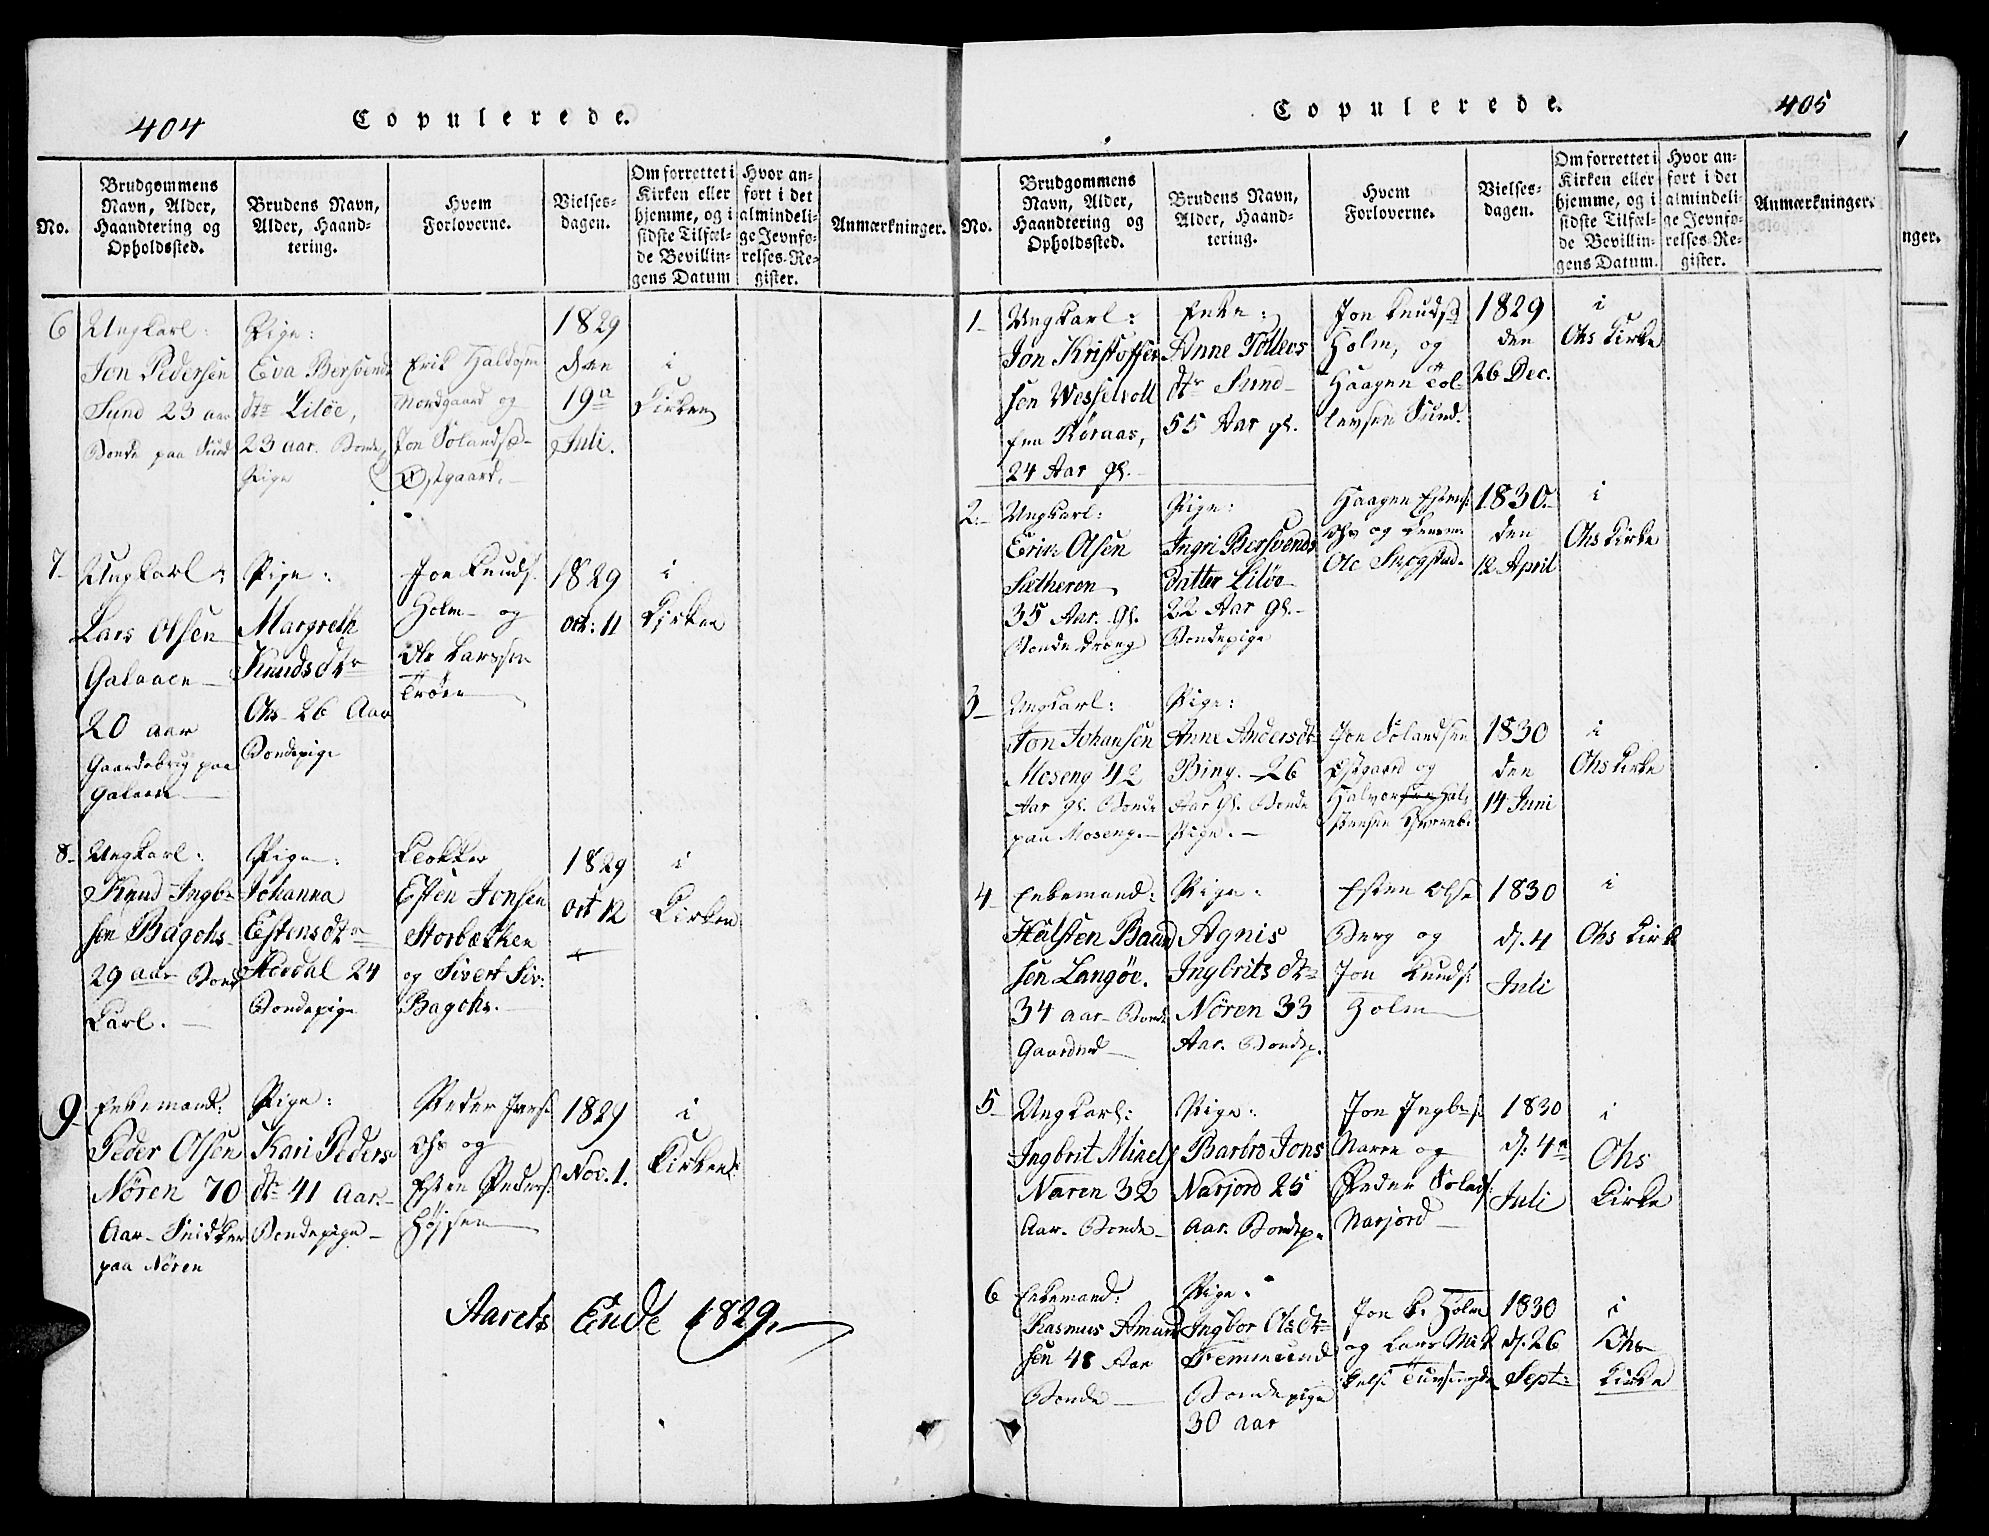 404
Copulerede.
No.
Brudgommens
Navn, Alder,
Haandtering og
Opholdssted.
Brudens Navn,
Alder, Haand-
tering.
Hvem
Forloverne.
Vielses-
dagen.
Om forrettet i
Kirken eller
hjemme, og i
sidste Tilfæl-
de Bevillin-
gens Datum
Hvor an-
ført i det
almindeli-
ge Jevnfø-
relses-Re-
gister.
Anmærkninger.
6
Ungkarl:
Jon Pedersen
Sund 23 aar
Bonde paa Sund
Pige:
Eva Bersvends
dtr Liløe,
23 aar. Bonde
Pige
Erik Haldosen
Nordgaard og
Jon Solandsen
Østgaard.
1829
den
19de
Juli.
i
Kirken
7
Ungkarl:
Lars Olsen
Galaaen
20 aar
Gaardebrug paa
Galaaen
Pige:
Margreth
Knudsdtr
Ohs 26 Aar
Bondepige
Jon Knuds.
Holm og
Ole Larssen
Trøen
1829
oct: 11
i
Kirken
8
Ungkarl:
Knud Ingbr
sen Bagohs
29 aar Bond
Karl.
Pige:
Johanna
Estensdtr
Herdal 24
Bondepige
Klokker
Esten Jonsen
Storbækken
og Sivert Siv:
Bagohs.
1829
oct 12
i
Kirken
9
Enkemand:
Peder Olsen
Nören 70
Aar Snidker
paa Nören
Pige:
Kari Peders
dtr 41 Aar
Bondepige
Peder Jans.
Ohs og
Esten Peders:
1829
Nov. 1.
i
Kirken
Aarets Ende 1829.
Copulerede.
405
No.
Brudgommens
Navn, Alder,
Haandtering og
Opholdssted.
Brudens Navn,
Alder, Haand-
tering.
Hvem
Forloverne.
Vielses-
dagen.
Om forrettet i
Kirken eller
hjemme, og i
sidste Tilfæl-
de Bevillin-
gens Datum.
Hvor an-
ført i det
almindeli-
ge Jevnfø-
relses-Re-
gister.
Anmærkninger.
nger.
1
Ungkarl:
Jon Kristoffer
sen Wesselvoll
fra Röraas,
24 Aar gl.
Enke:
Anne Tollevs
dtr Sund
55 Aar gl.
Jon Knuds
Holm, og
Haagen Tol-
levsen Sund.
1829
den
26 Dec.
i
Ohs Kirke
2
Ungkarl:
Erik Olsen
Sætheren
35 Aar. gl.
Bonde dreng
Pige:
Ingri Bersvends
datter Liløe
22 Aar gl.
Bondepige
Haagen Estens:
Ohs og
Ole Smogstad
1830.
den
12 April
i
Ohs Kirke
3
Ungkarl:
Jon Johansen
Moseng 42
Aar gl. Bonde
paa Moseng.
Pige:
Anne Andersdt
Bing. 26
Aar gl. Bonde
Pige.
Jon Solandsen
Østgaard og
1830
den
14 Juni
i
Ohs Kirke
4
Enkemand:
Halsten Baard
sen Langöe.
34 aar Bonde
Pige:
Agnis
Ingbritsdtr
Nören 33
Aar. Bondep.
Esten Olse
Berg og
Jon Knuds:
Holm
1830
d. 4
Juli
i
Ohs Kirk
5
Ungkarl:
Ingbrit Mikels
Naren 32
Aar. Bonde
Pige:
Barbro Jons
Narjord 25
aar. Bondep.
Jon Ingbr:
Naren og
Peder Solads:
Narjord
1830
d. 4de
Juli
i
Ohs
Kirke
6
Enkemand:
Rasmus Amund
sen 48 Aar
Bonde
Pige:
Ingbor Olsdtr
Femmesund
Bondepige
30 aar
Jon K. Holm
og Lars Mik
1830
d. 26
Sept:
i
Ohs
Kirke